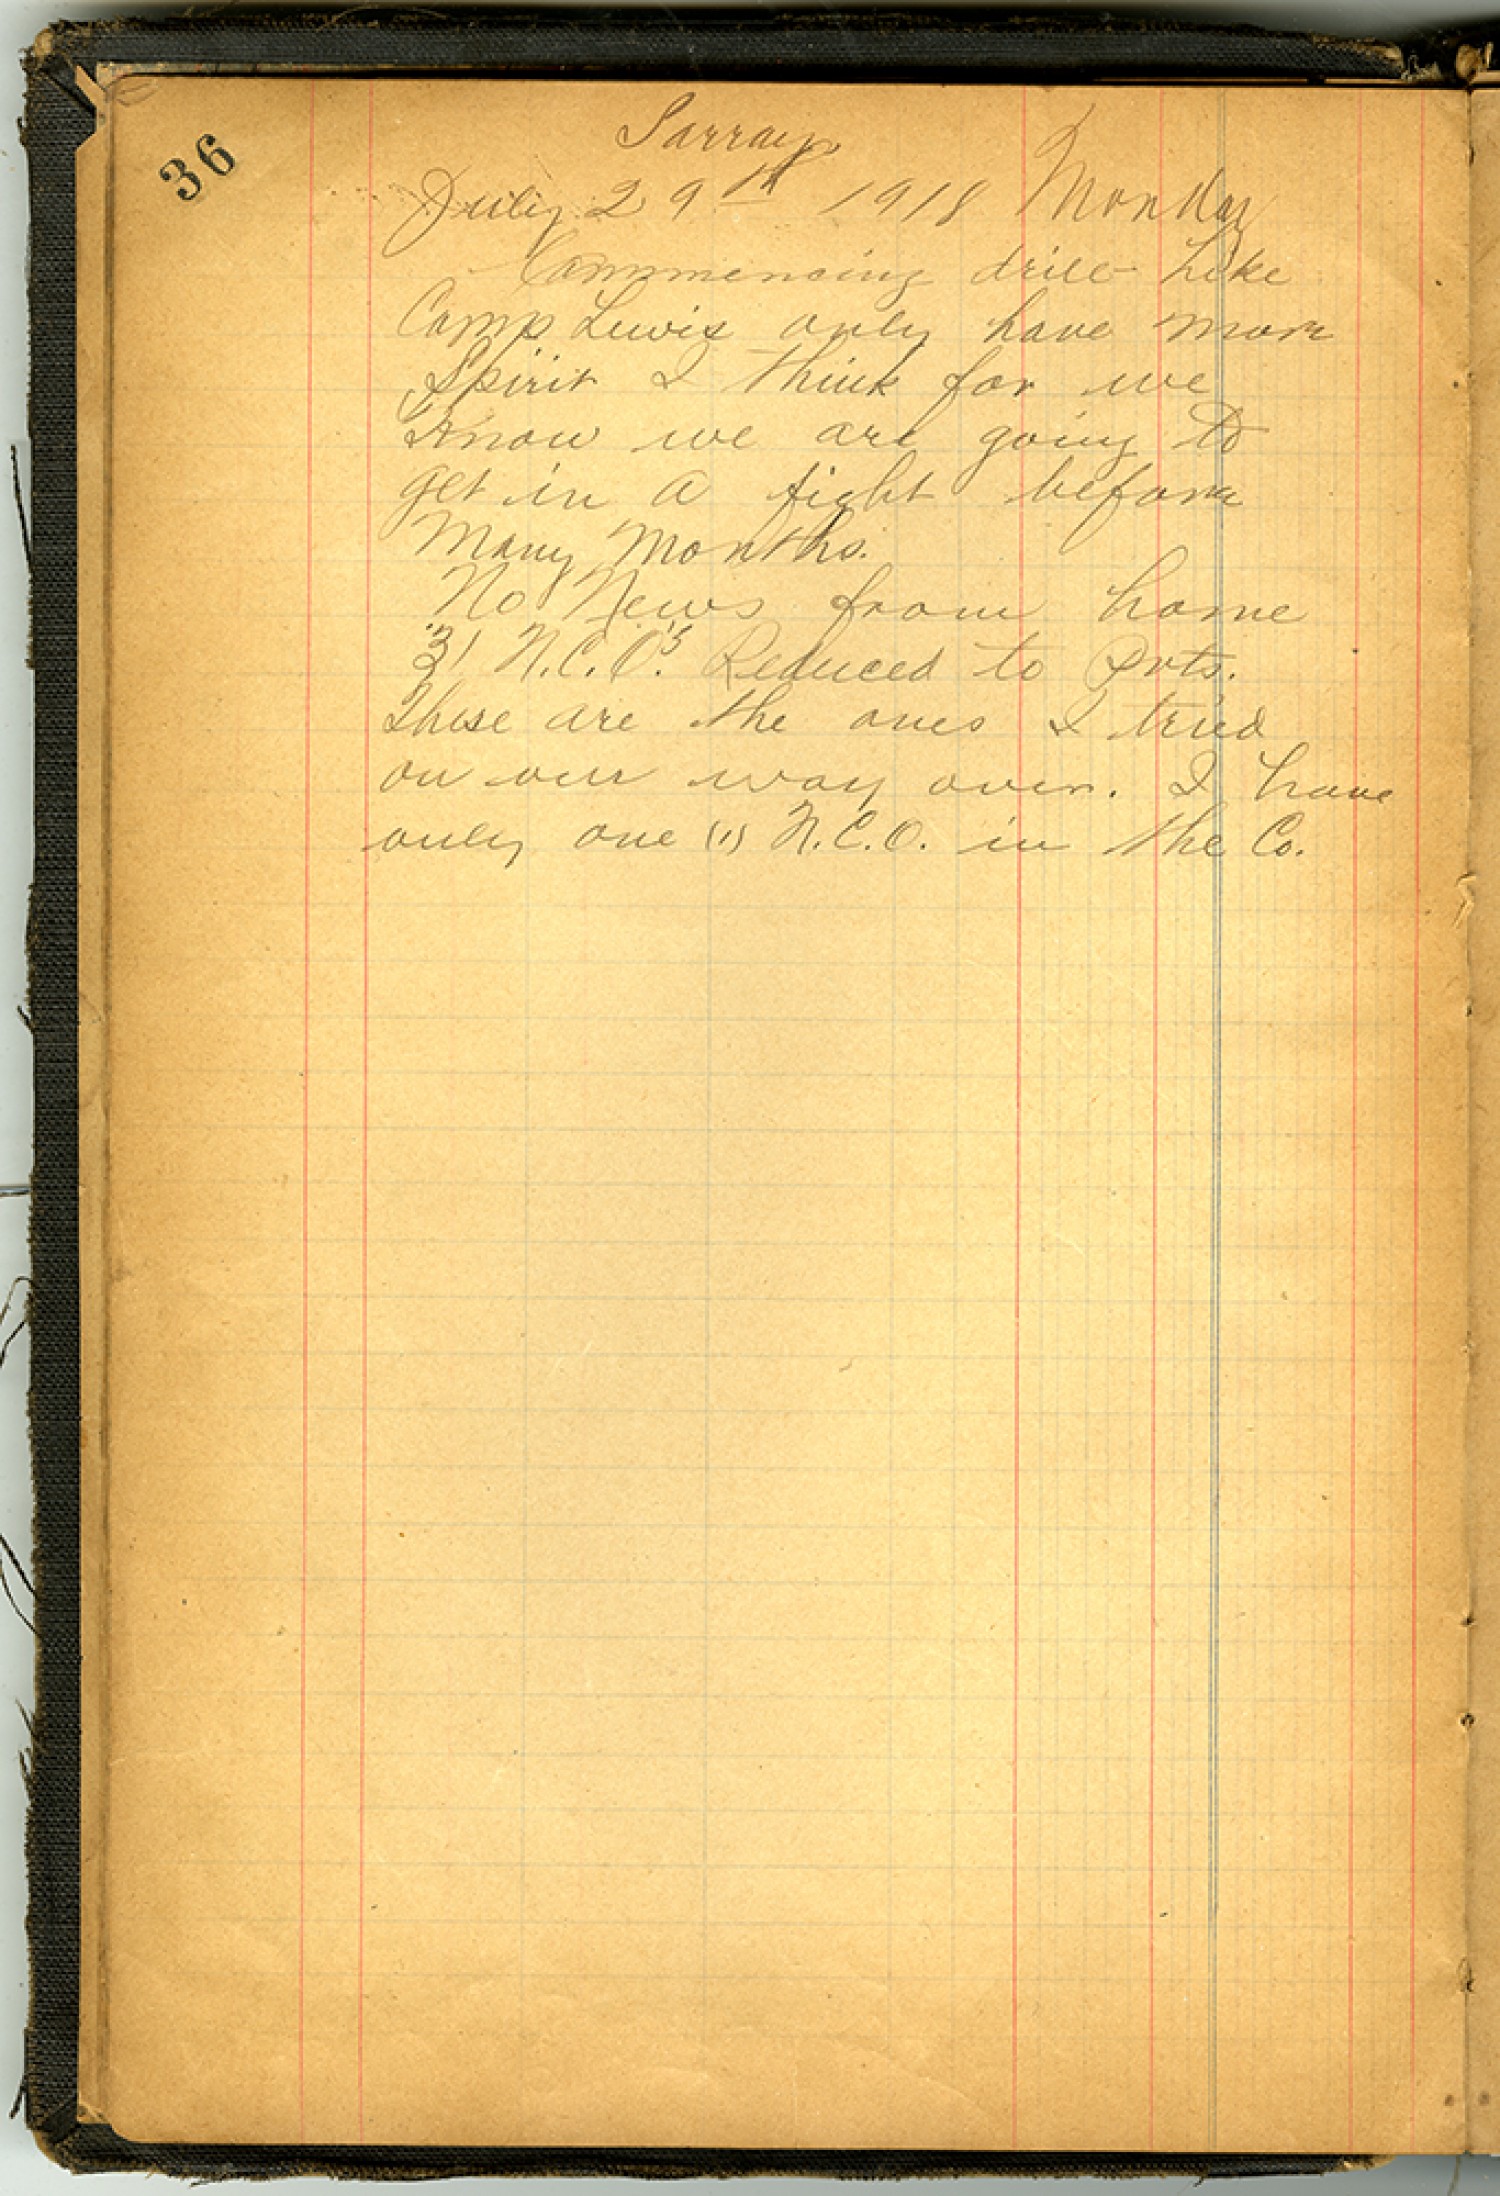 36
Sarrey
July 29th 1918 Monday
Commencing drill like
Camp Lewis only have more
Spirit I think for we
Know we are going to
get in a fight before
Many Months.
No News from home
31 N.C.O.'s Reduced to Pvts.
These are the ones I tried
on our way over. I have
only one (1) N.C.O. in the Co.